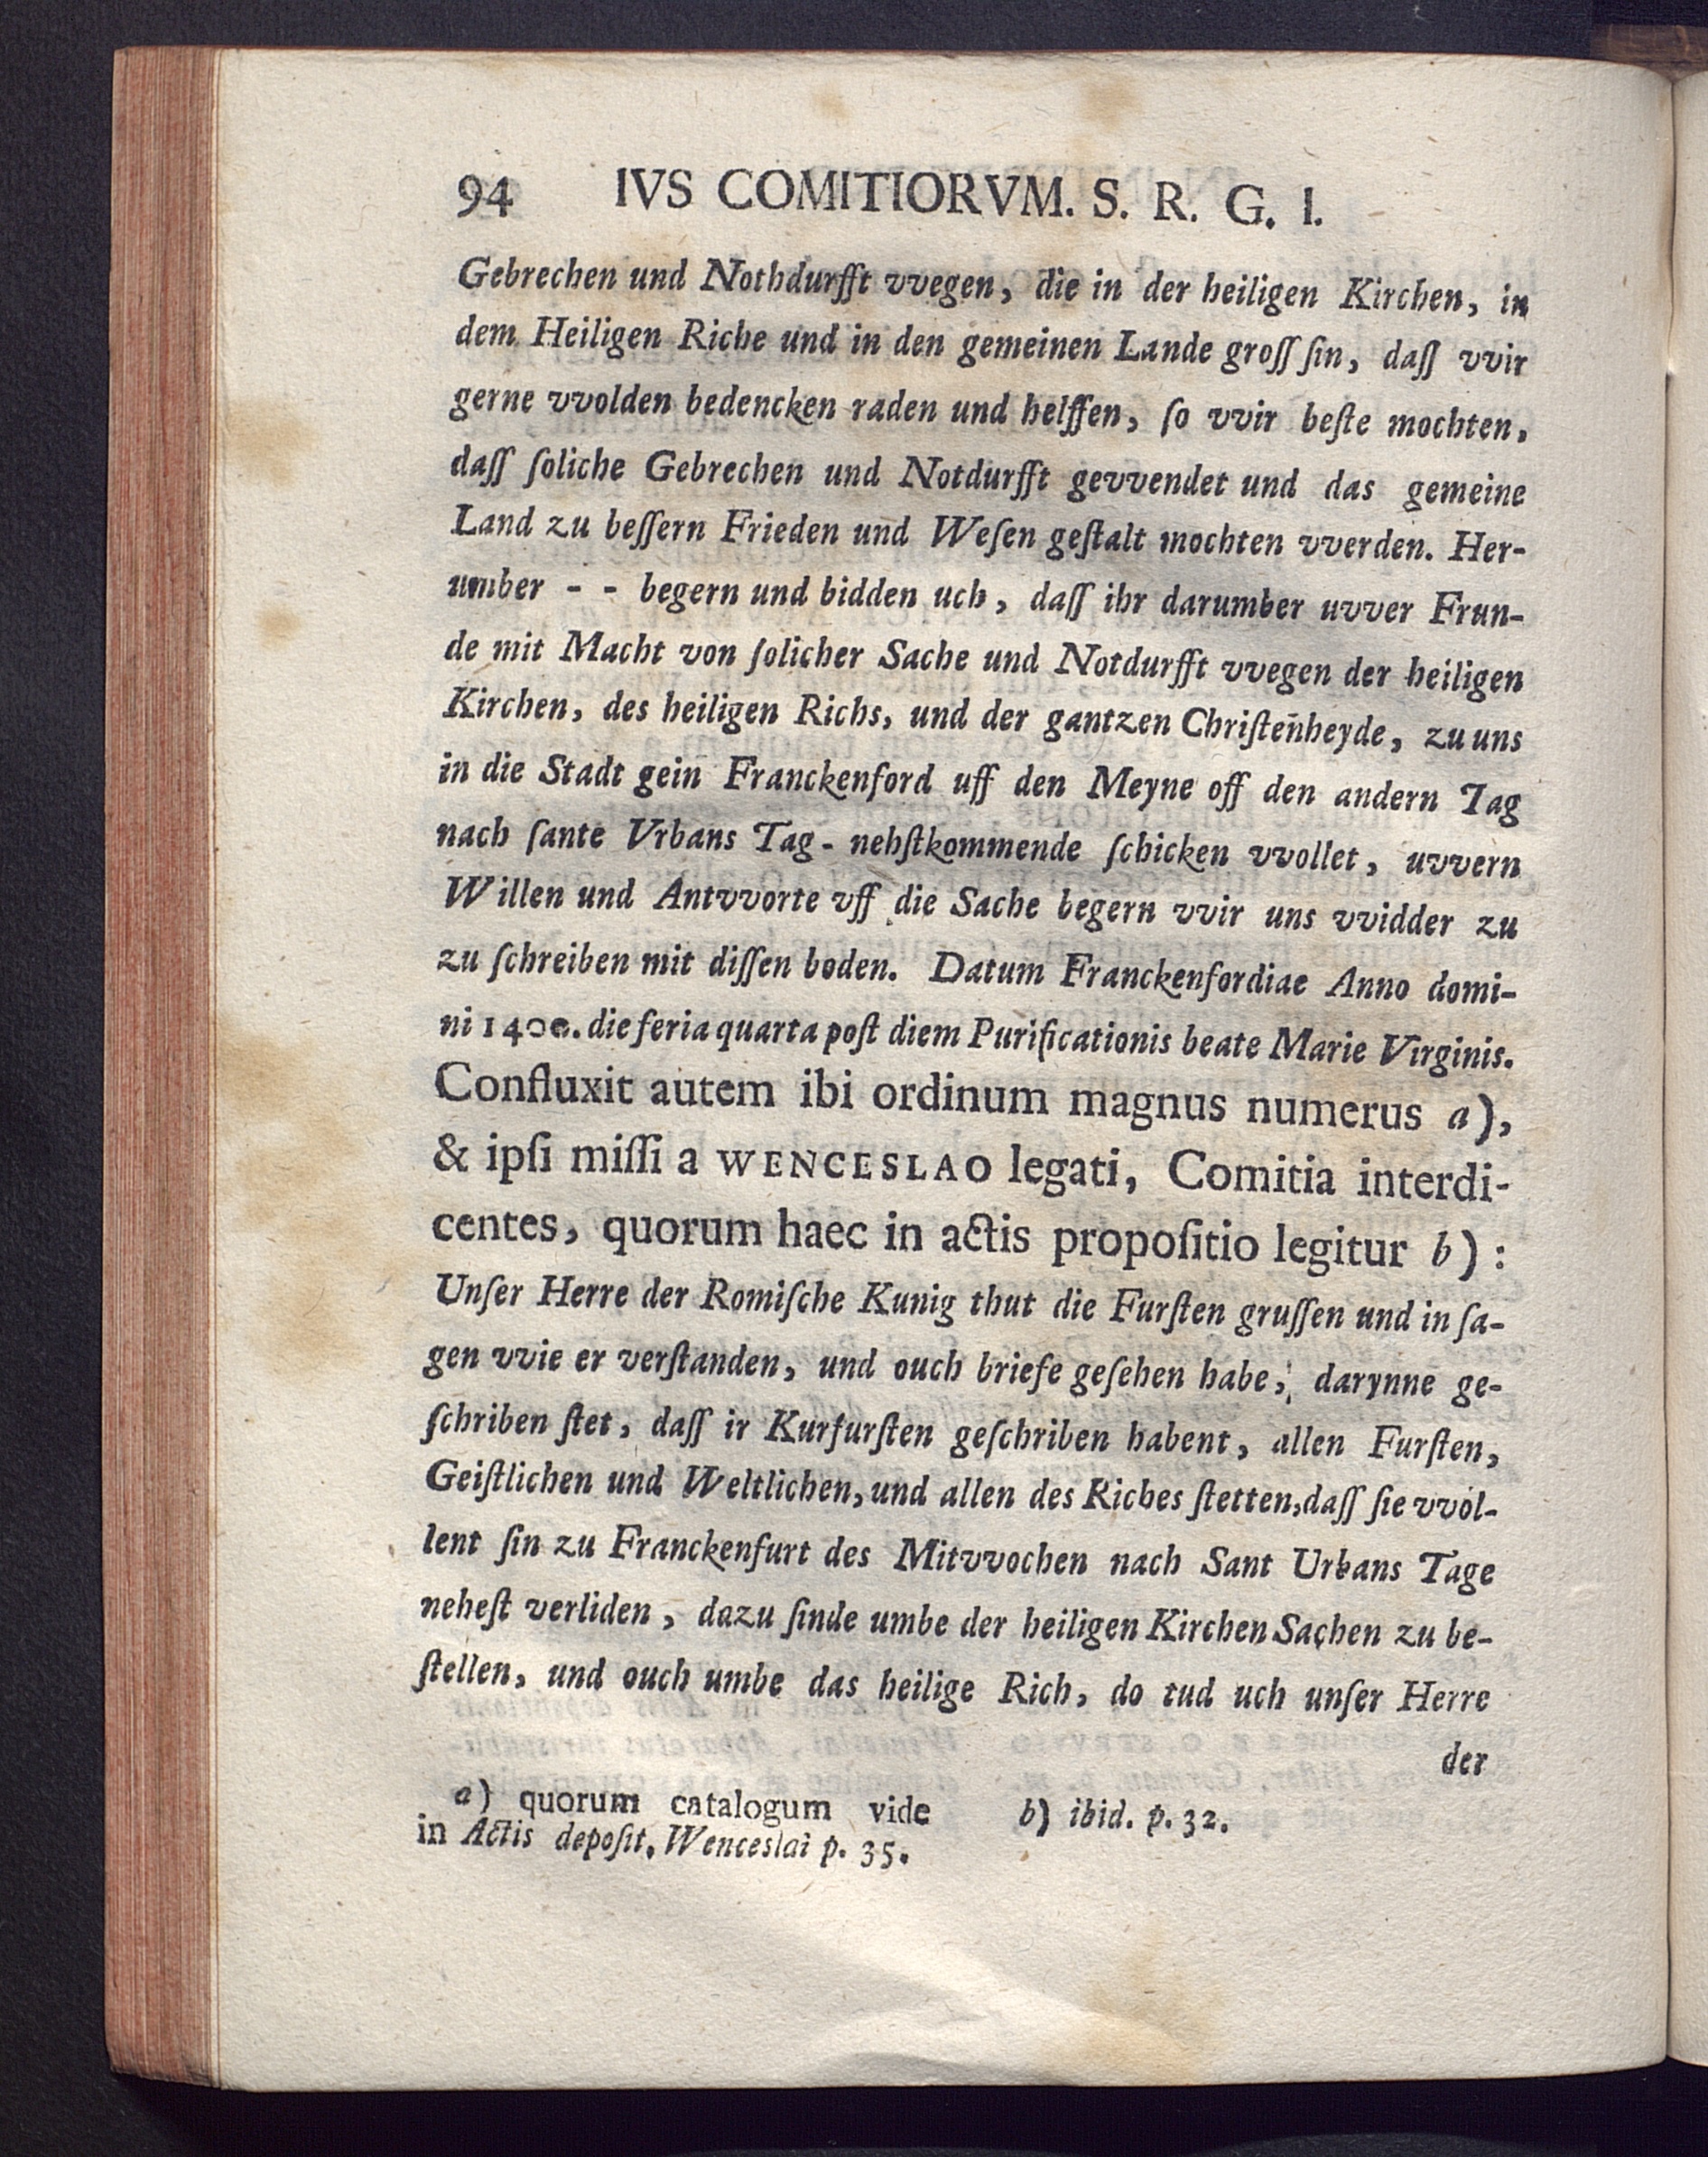 94 IVS COMITIORVM. S. R. G. I.
Gebrechen und Nothdurfft vvegen, die in der heiligen Kirchen, in
dem Heiligen Riche und in den gemeinen Lande groſſ ſin, daſſ vvir
gerne vvolden bedencken raden und helffen, ſo vvir beſte mochten,
daſſ ſoliche Gebrechen und Notdurfft gevvendet und das gemeine
Land zu beſſern Frieden und Weſen geſtalt mochten vverden. Her-
umber - - begern und bidden uch, daſſ ihr darumber uvver Frun-
de mit Macht von ſolicher Sache und Notdurfft vvegen der heiligen
Kirchen, des heiligen Richs, und der gantzen Chriſten̄heyde, zu uns
in die Stadt gein Franckenford uff den Meyne off den andern Tag
nach ſante Vrbans Tag - nehſtkommende ſchicken vvollet, uvvern
Willen und Antvvorte vff die Sache begern vvir uns vvidder zu
zu ſchreiben mit diſſen boden. Datum Franckenfordiae Anno domi-
ni 1400. die feria quarta poſt diem Purificationis beate Marie Virginis.
Confluxit autem ibi ordinum magnus numerus a),
& ipſi miſſi a WENCESLAO legati, Comitia interdi-
centes, quorum haec in actis propoſitio legitur b):
Unſer Herre der Romiſche Kunig thut die Furſten gruſſen und in ſa-
gen vvie er verſtanden, und ouch briefe geſehen habe, darynne ge-
ſchriben ſtet, daſſ ir Kurfurſten geſchriben habent, allen Furſten,
Geiſtlichen und Weltlichen, und allen des Riches ſtetten, daſſ ſie vvol-
lent ſin zu Franckenfurt des Mitvvochen nach Sant Urbans Tage
neheſt verliden, dazu ſinde umbe der heiligen Kirchen Sachen zu be-
ſtellen, und ouch umbe das heilige Rich, do tud uch unſer Herre
der
a) quorum catalogum vide
in Actis depoſit. Wenceslai p. 35.
b) ibid. p. 32.